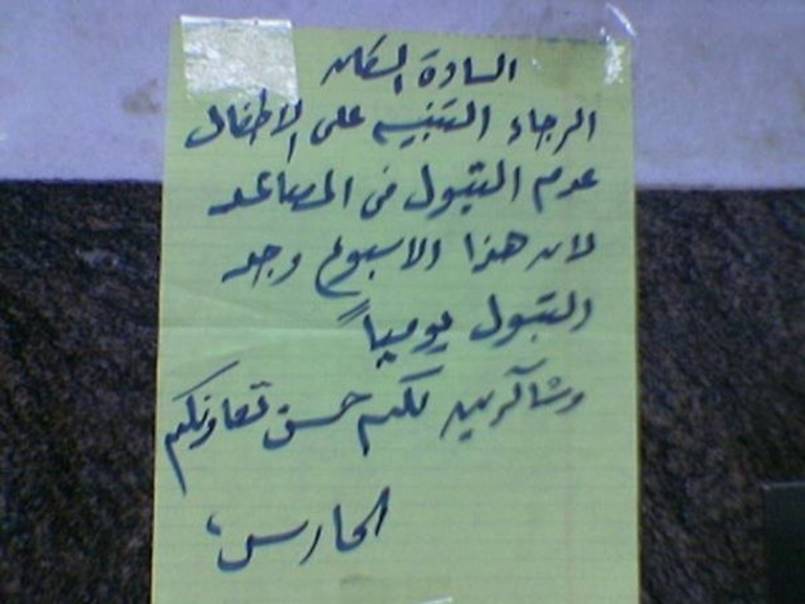 السادة السكان
الرجاء التنبيه على الاطفال
عدم التبول فى المصاعد
لان هذا الاسبوع وجد
التبول يومياً
وشاكرين لكم حسن تعاونكم
الحارس،